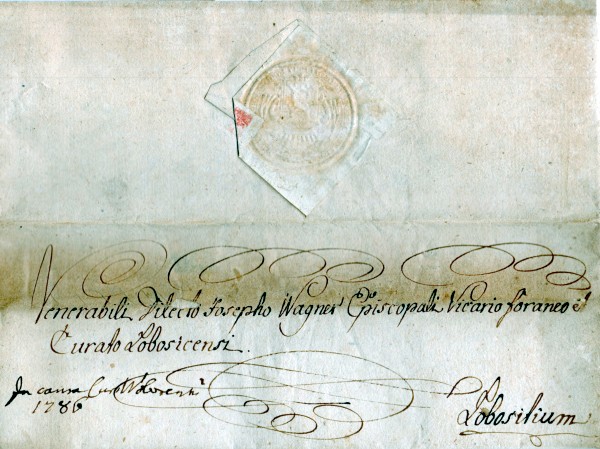 Venerabili Dilecto Josepho Wagner Episcopali Vicario foraneo et
Curato Lobosicensi.
In causa
1786
Lobosilium